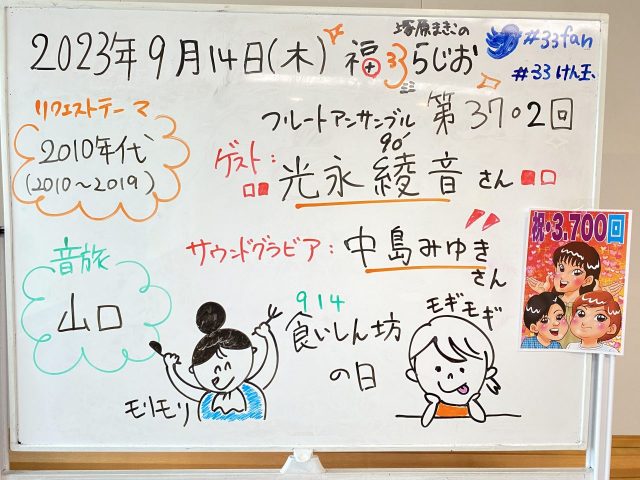 塚原まきこの
2023年9月14日(木) 福+33らじお
#33fan
#33けん玉
リクエストテーマ
2010年代
(2010~2019)
フルートアンサンブル 第37.02回
90'
ゲスト:
光永綾音さん
サウンドグラビア: 中島みゆき
さん
音旅
山口
祝・3,700回
914
食いしん坊
の日
モリモリ
モギモギ